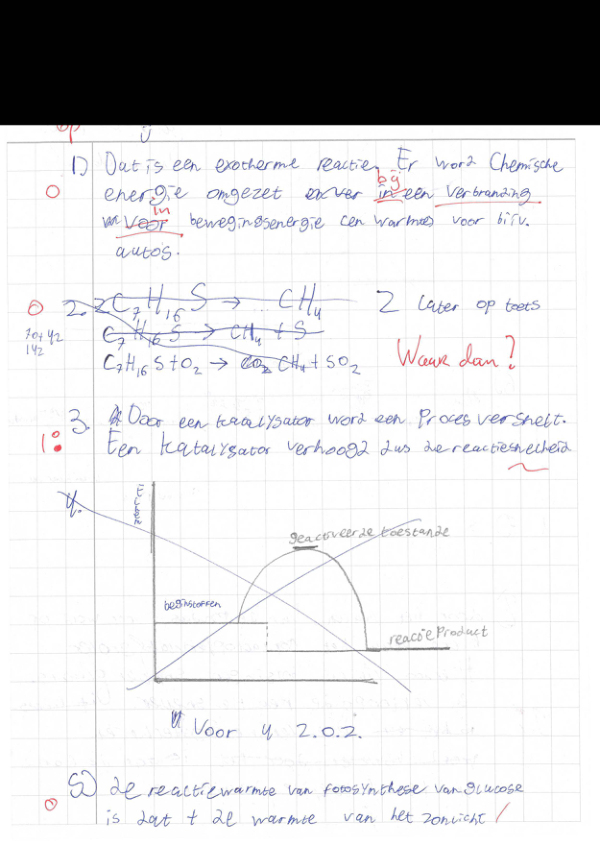 op
1) Dat is een exotherme reactie. Er word Chemische
0 energie omgezet bij in een verbranding
in voor bewegingsenergie en warmte voor bijv.
autos.
0 2. C7H16S → CH4 2 later op toets
C7H16S → CH4 + S
C7H16S + O2 → CO2 CH4 + SO2 Waar dan?
1: 3. Door een kaalysator word een Proces versnelt.
Een katalysator verhoogd dus de reactiesnelheid
4.
geactiveerde toestande
beginstoffen
reactie Product
Voor 4 z.o.z.
0 5) de reactiewarmte van fotosynthese van glucose
is dat + de warmte van het zonlicht